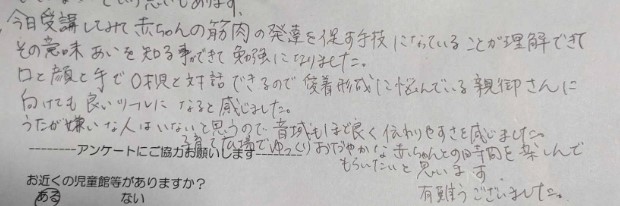 今日受講してみて赤ちゃんの筋肉の発達を促す手技になっていることが理解できて
その意味あいを知る事ができて勉強になりました。
口と顔と手で0才児と対話できるので愛着形成に悩んでいる親御さんに
向けても良いツールになると感じました。
うたが嫌いな人はいないと思うので音域もほど良く伝わりやすさを感じました。
子育て広場でゆっくりおだやかな赤ちゃんとの時間を楽しんで
もらいたいと思います。
有難うございました。
--------アンケートにご協力お願いします--------
お近くの児童館等がありますか?
ある ない